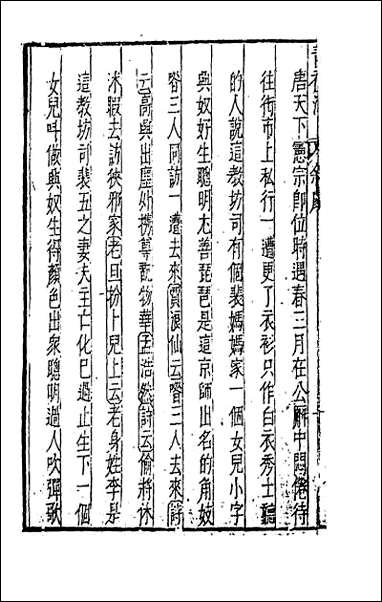 唐天下憲宗即位時遇春三月在公廨中悶倦待
往街市上私行一遭更了衣衫只作白衣秀士聽
的人說這教坊司有個裴媽媽家一個女兒小字
與奴好生聰明尤善琵琶是這京師出名的角妓
喒三人同訪一遭去來賈浪仙云喒三人去來詩
云高與出塵外携尊翫物華孟浩然詩云偷將休
沐暇去訪狹邪家老旦扮卜兒上云老身姓李是
這教坊司裴五之妻夫主亡化已過止生下一個
女兒叫做與奴生得顏色出衆聰明過人吹彈歌